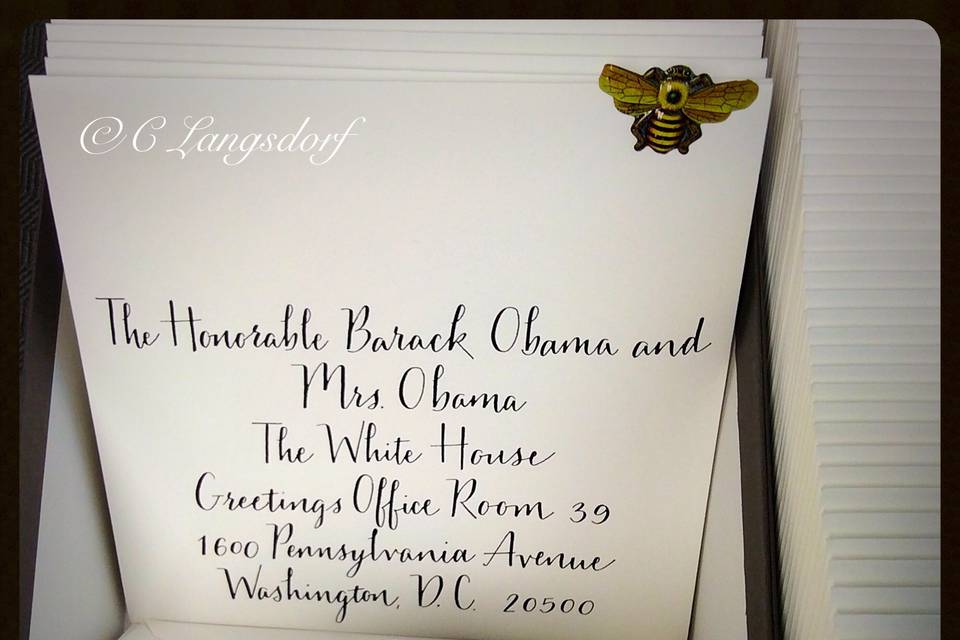 © C Langsdorf
The Honorable Barack Obama and
Mrs. Obama
The White House
Greetings Office Room 39
1600 Pennsylvania Avenue
Washington, D.C. 20500